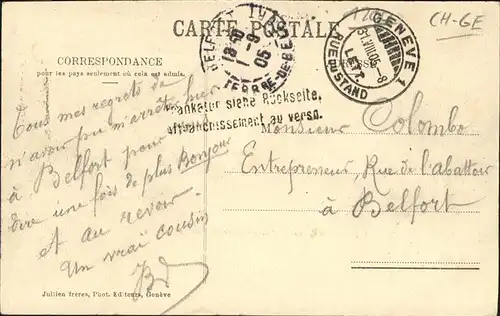 CH-GE
CARTE POSTALE
CORRESPONDANCE
pour les pays seulement où cela est admis.
BELFORT
1-9
05
GENEVE 1
31.VIII.05-8
LETT.
RUE DU STAND
Frankatur siehe Rückseite.
affranchissement au verso.
Tous mes regrets de
n'avoir pu m'arrêter hier
à Belfort pour
dire une fois de plus Bonjour
et au revoir.
Un vrai cousin
Monsieur Colombo
Entrepreneur, Rue de l'abattoir
à Belfort
Jullien frères, Phot. Editeurs, Genève